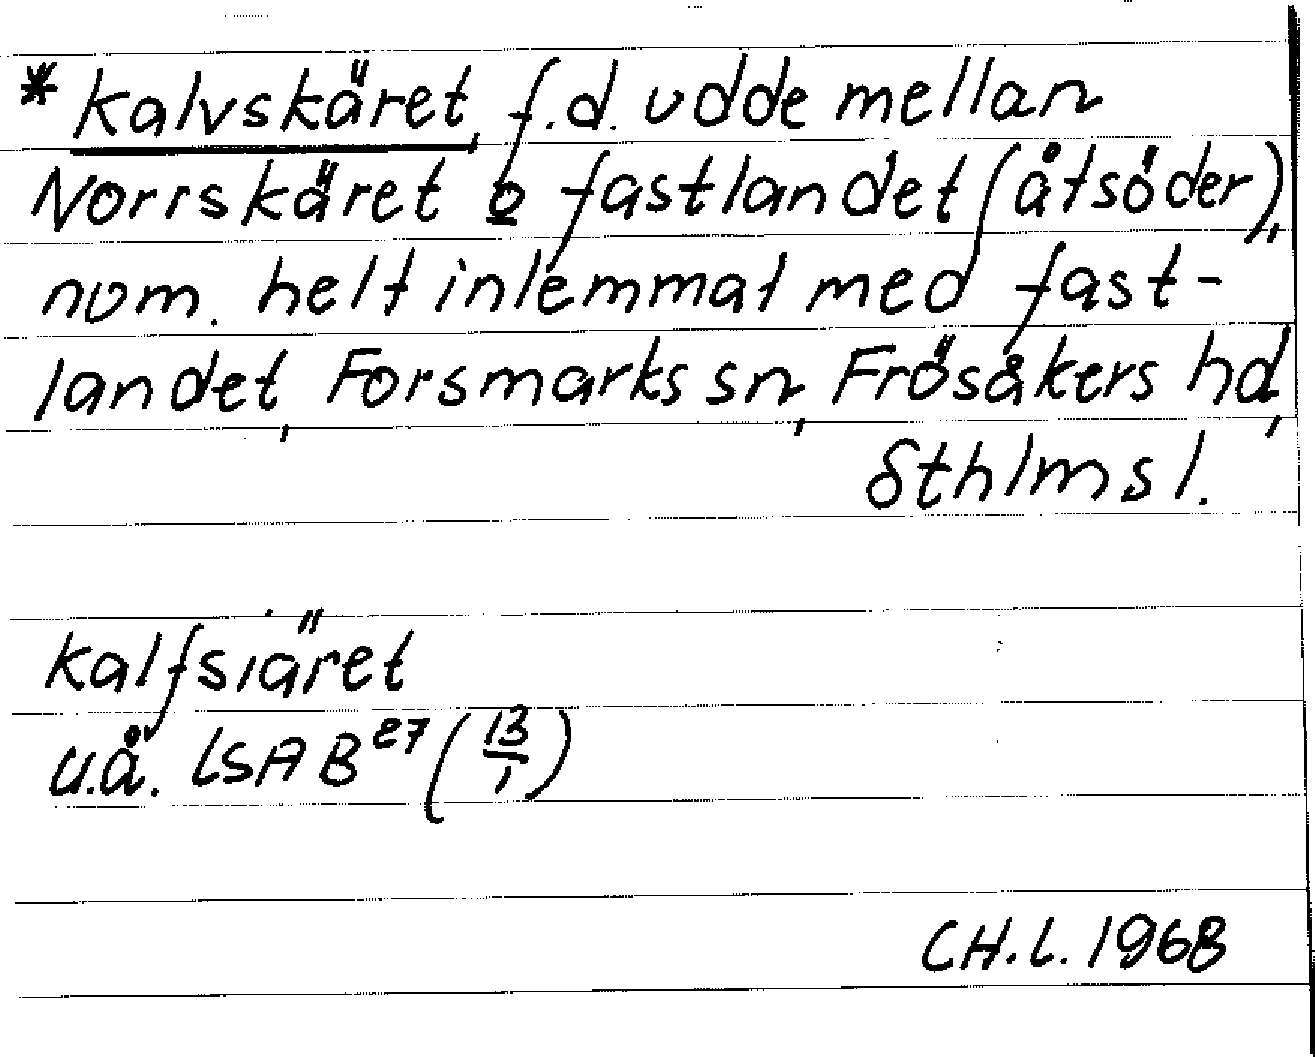 * Kalvskäret, f.d. udde mellan
Norrskäret o fastlandet (åtsöder),
num. helt inlemmat med fast-
landet, Forsmarks sn, Frösåkers hd,
Sthlms l.
Kalfsiäret
u.å. LSA B27 (13/1)
CH.L. 1968